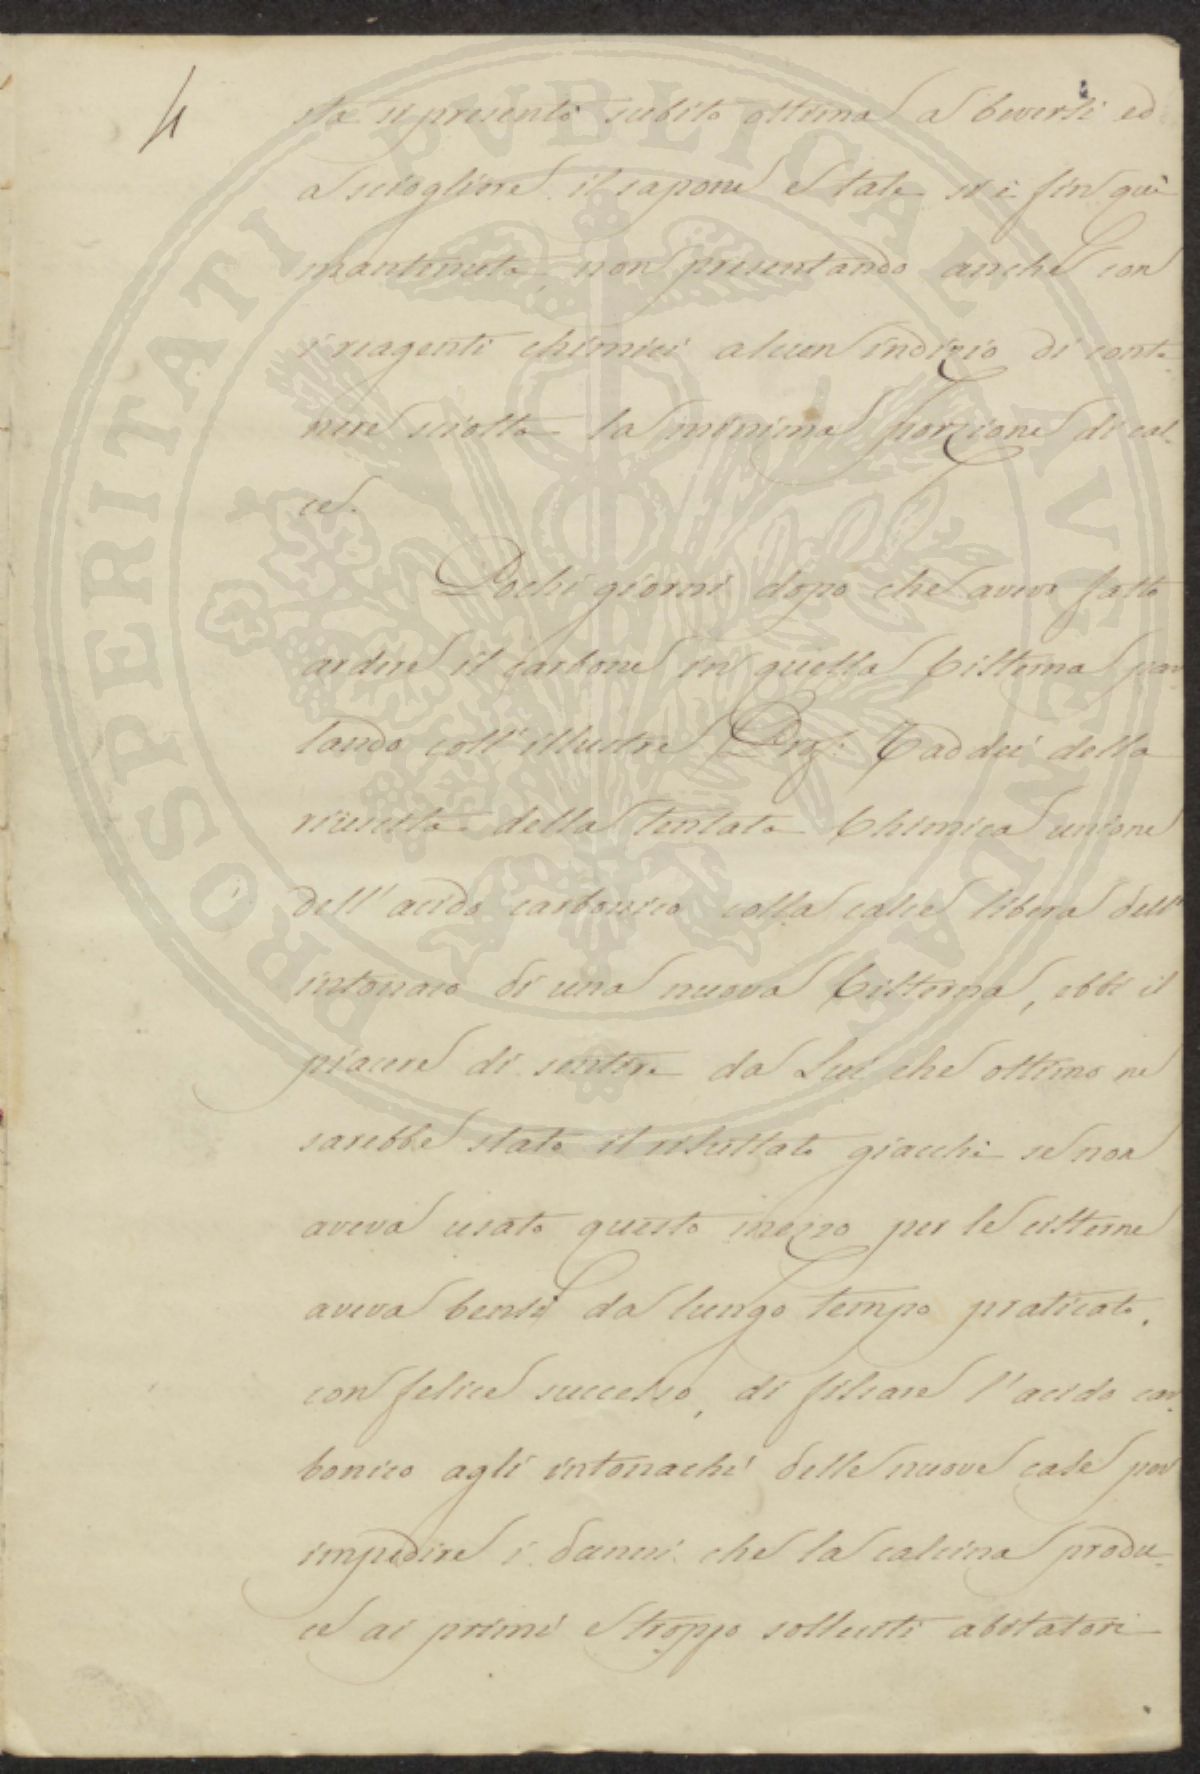 4
sta si presentò subito ottima a beversi ed
a sciogliere il sapone e tale si è fin quì
mantenuta, non presentando anche con
i reagenti chimici alcun indizio di conte-
nere sciolta la minima porzione di cal-
ce.
Pochi giorni dopo che avevo fatto
ardere il carbone in quella Cisterna par-
lando coll'illustre Prof. Taddei della
riuscita della tentata Chimica unione
dell'acido carbonico colla calce libera dell'
intonaco di una nuova Cisterna, ebbi il
piacere di sentire da Lui che ottimo ne
sarebbe stato il risultato giacchè se non
aveva usato questo mezzo per le cisterne
aveva bensì da lungo tempo praticato,
con felice successo, di fissare l'acido car-
bonico agli intonachi delle nuove case per
impedire i danni che la calcina produ-
ce ai primi e troppo solleciti abitatori
PROSPERITATI PVBLICAE AVGENDAE